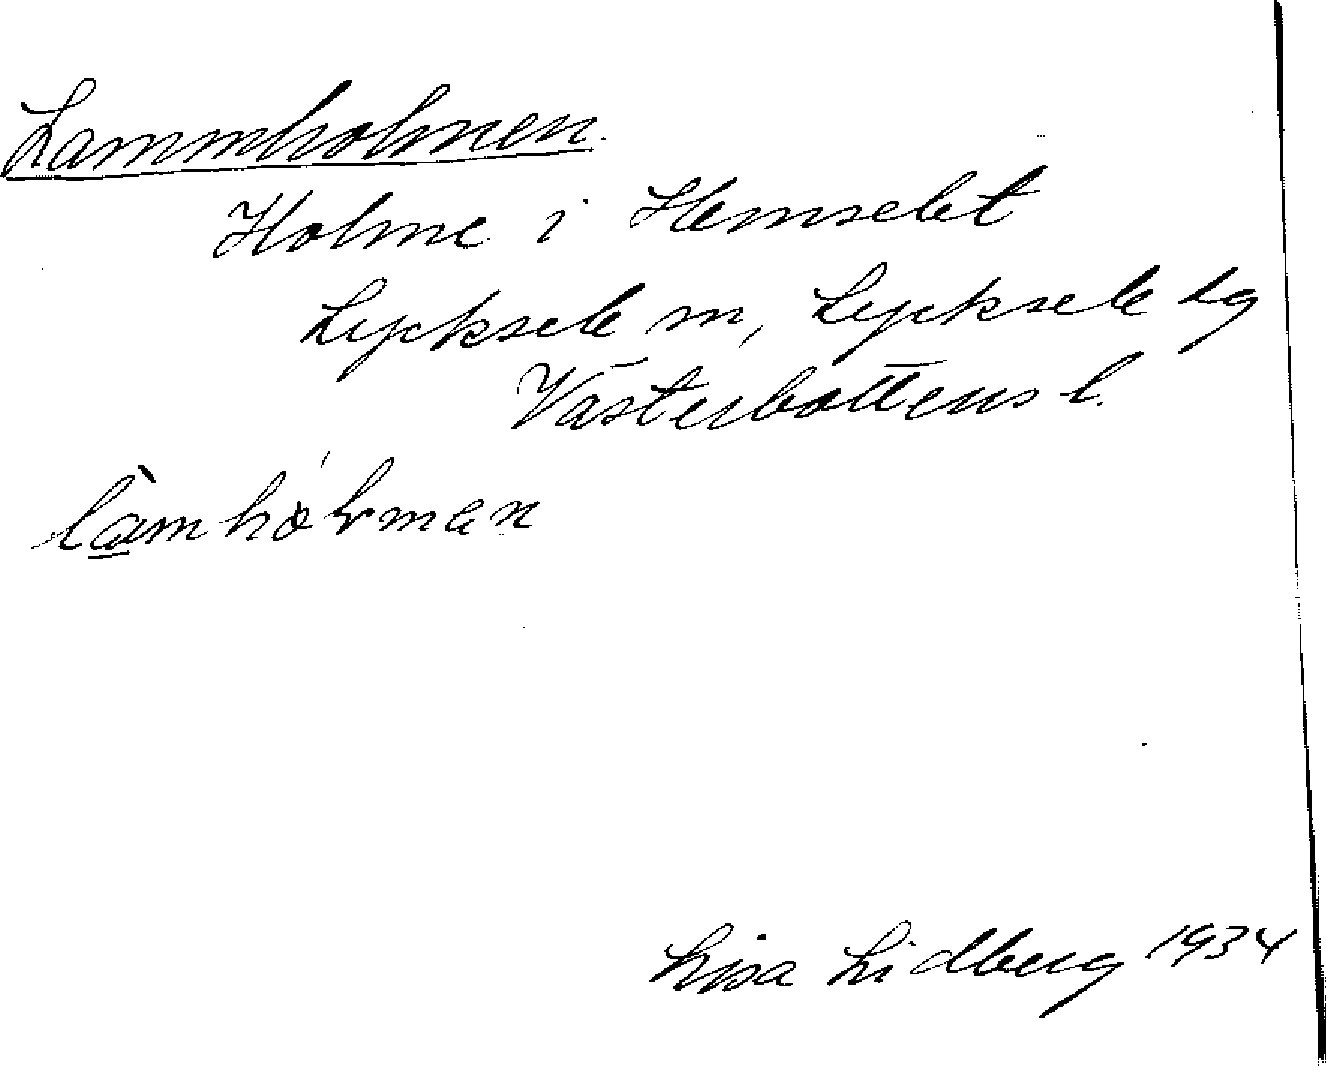 Lammholmen.
Holme i Hemselet
Lycksele m, Lycksele lg
Västerbottens l.
Lisa Lidberg 1934